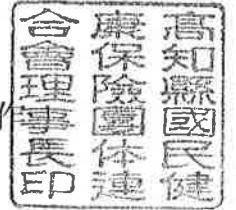 高知縣國民健
康保險團体連
合會理事長印